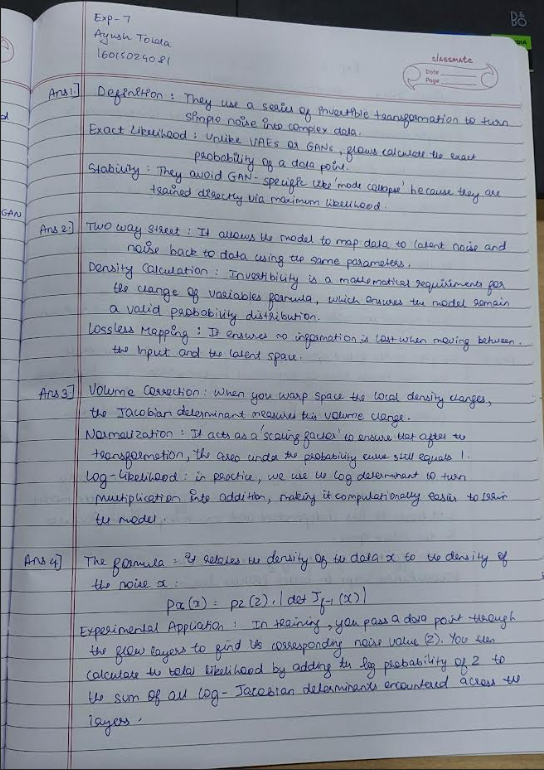 Exp-7
Ayush Towla
16015024081
classmate
Date
Page
Ans 1] Definition : They use a series of invertible transformation to turn
simple noise into complex data.
Exact Likelihood : Unlike VAEs or GANs, flows calculate the exact
probability of a data point.
Stability : They avoid GAN-specific like 'mode collapse' because they are
trained directly via maximum likelihood.
GAN
Ans 2] Two way street : It allows the model to map data to latent noise and
noise back to data using the same parameters.
Density Calculation : Invertibility is a mathematical requirements for
the change of variables formula, which ensures the model remain
a valid probability distribution.
Lossless Mapping : It ensures no information is lost when moving between
the input and the latent space.
Ans 3] Volume Correction : When you warp space the local density changes,
the Jacobian determinant measures this volume change.
Normalization : It acts as a 'scaling factor' to ensure that after the
transformation, the area under the probability curve still equals 1.
Log-Likelihood : in practice, we use the log determinant to turn
multiplication into addition, making it computationally easier to train
the model.
Ans 4] The formula : It relates the density of the data x to the density of
the noise x :
px(x) = pz(z) . | det Jf-1 (x) |
Experimental Application : In training, you pass a data point through
the flow layers to find its corresponding noise value (z). You then
calculate the total likelihood by adding the log probability of z to
the sum of all log-Jacobian determinants encountered across the
layers.